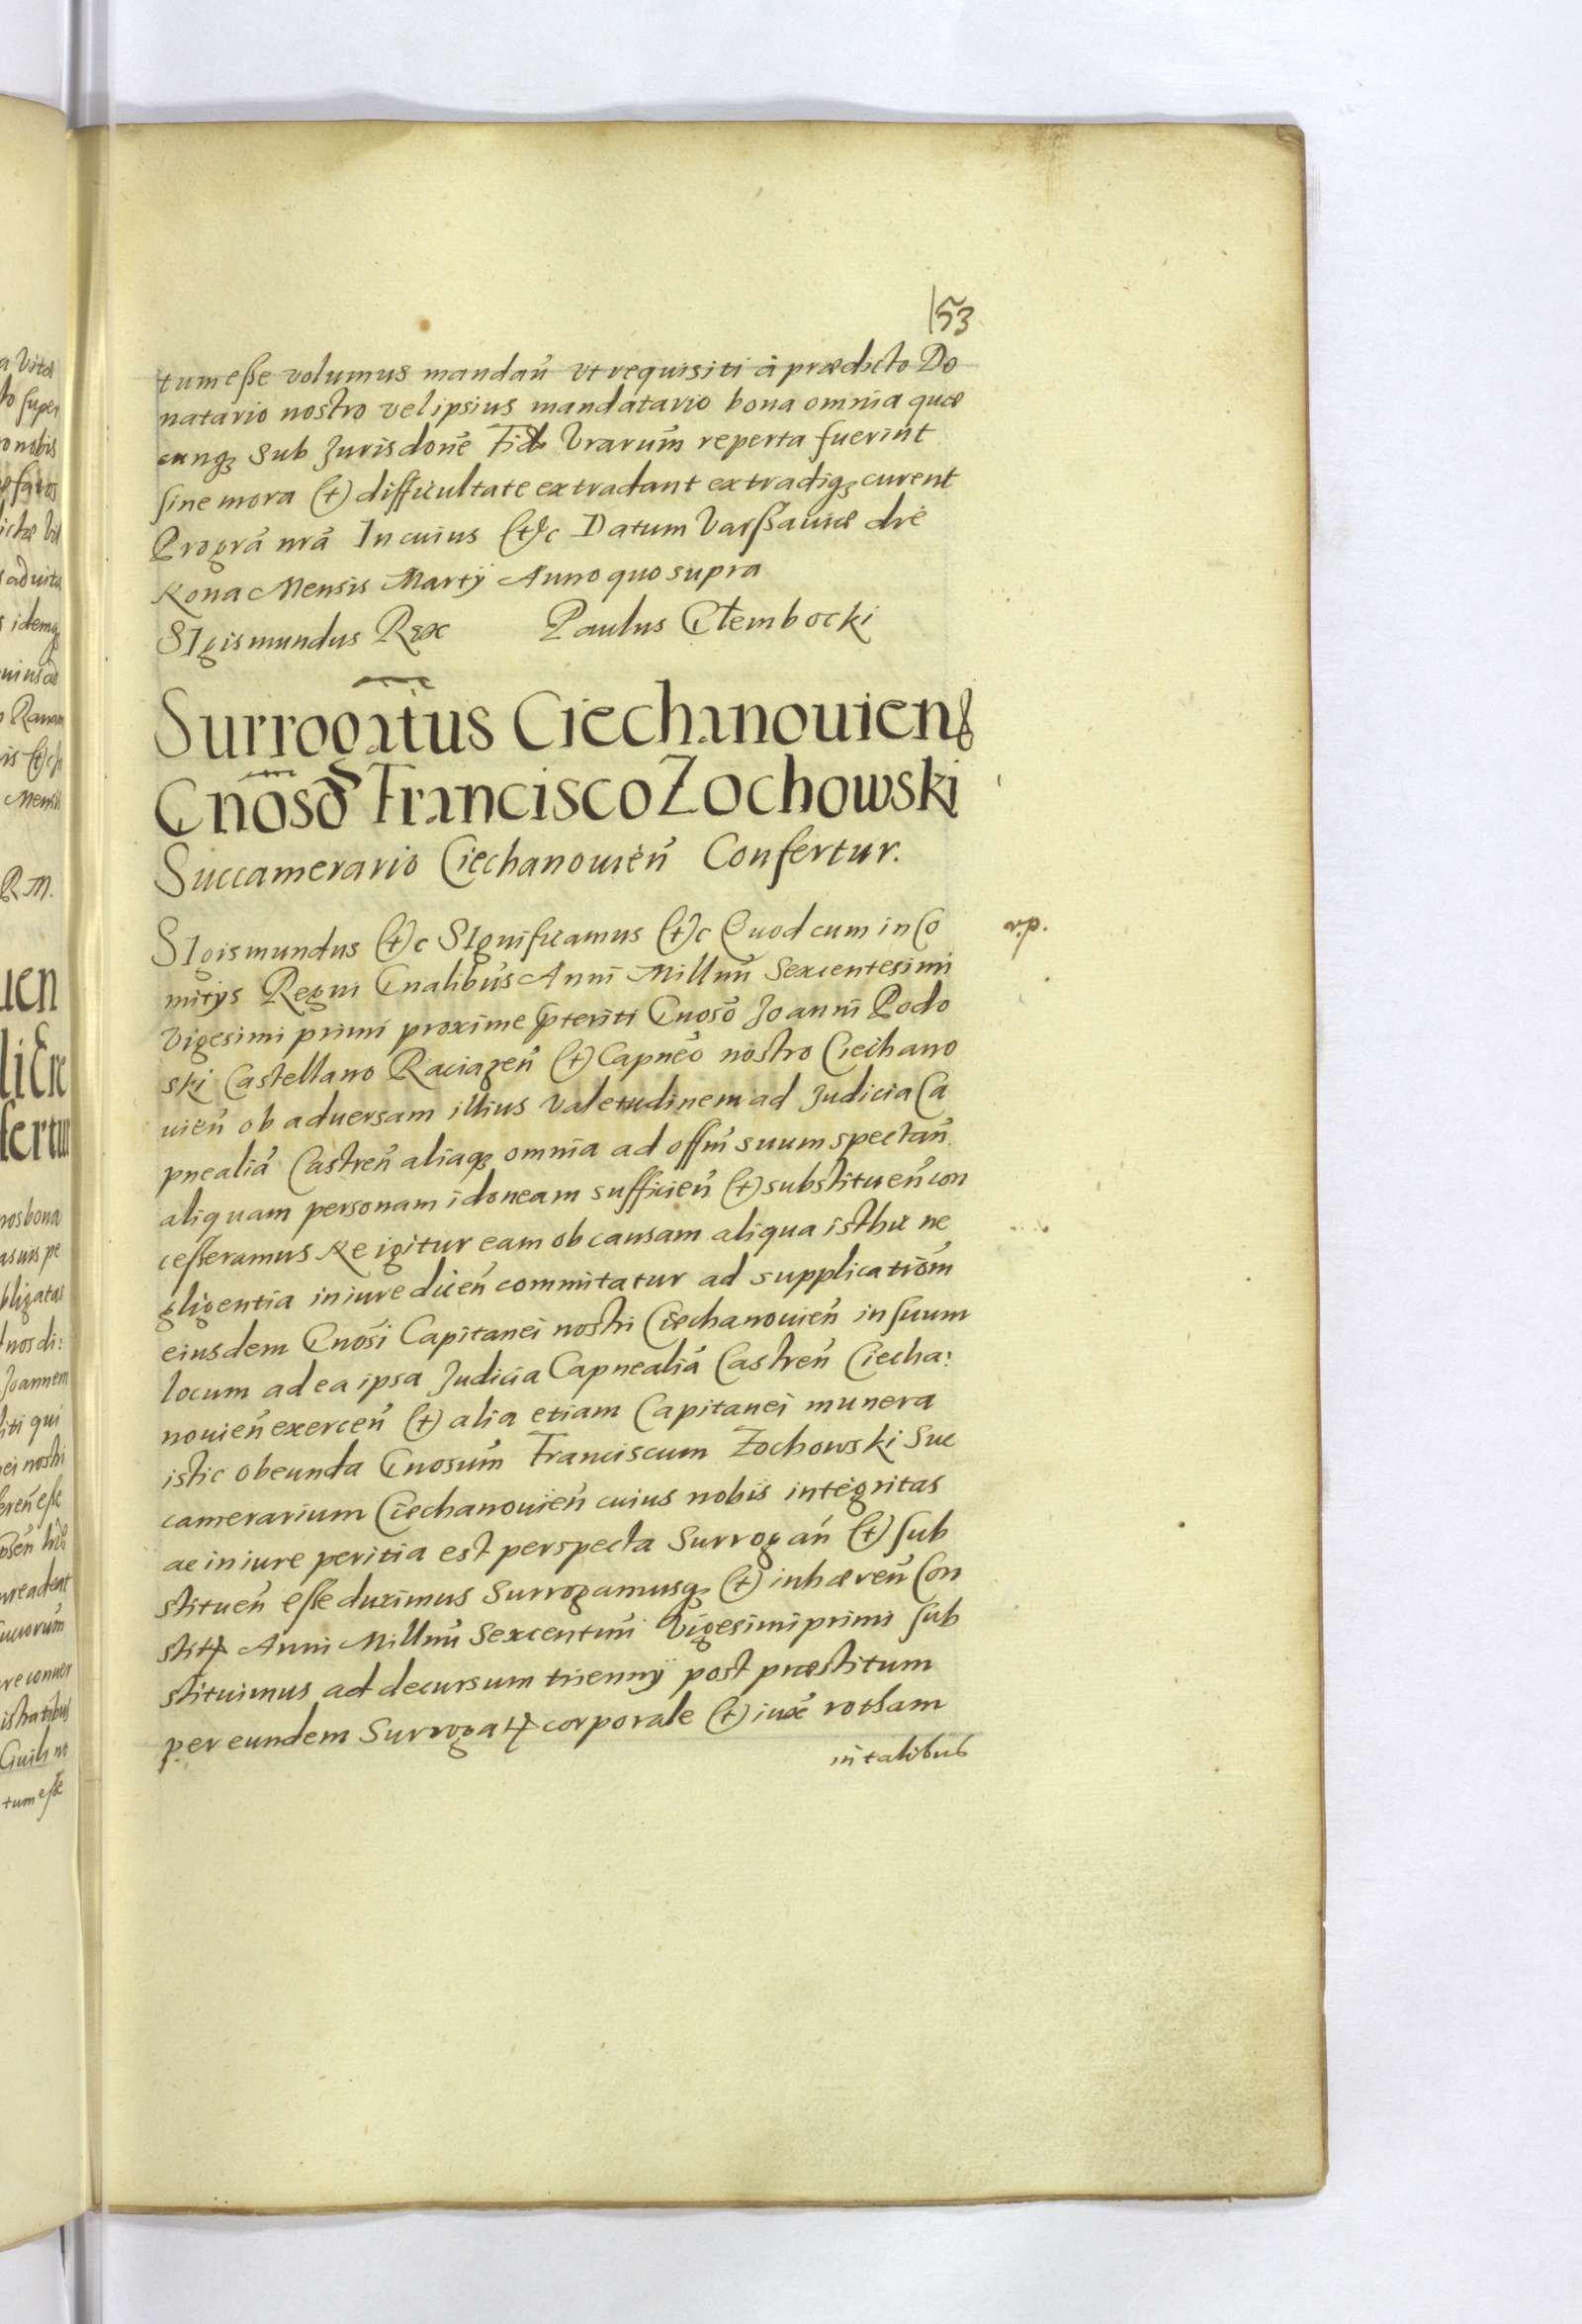 153
tum esse volumus mandań vt requisiti à prædicto Do
natario nostro vel ipsius mandatario bona omnia quæ
cunqȝ sub Jurisdone Fid Vrarum reperta fuerint
sine mora (et) difficultate extradant extradiqȝ curent
Prográ nrá In cuius (et)c Datum Varssauiæ die
Nona Mensis Martÿ Anno quo supra
SIgismundus Rex Paulus Glembocki
Surrogatus Ciechanouien
Gnoso Francisco Zochowski
Succamerario Ciechanouień Confertur.
v.p.
SIgismundus (et)c SIgnificamus (et)c Quod cum in Co
mitÿs Regni Gnalibus Anni Millmi Sexcentesimi
Vigesimi primi proxime pteriti Gnoso Joanni Podo
ski Castellano Raciązeń (et) Capneo nostro Ciechano
uień ob aduersam illius Valetudinem ad Judicia Ca
pnealiá Castreń aliaqȝ omnia ad offm suum spectań
aliquam personam idoneam sufficień (et) substitueń con
cesseramus Ne igitur eam ob causam aliqua isthic ne
gligentia in iure diceń committatur ad supplicatiom
eiusdem Gnosi Capitanei nostri Ciechanouień in suum
locum ad ea ipsa Judicia Capnealiá Castreń Ciecha:
nouień exerceń (et) alia etiam Capitanei munera
istic obeunda Gnosum Franciscum Zochowski Suc
camerarium Ciechanouień cuius nobis integritas
ac in iure peritia est perspecta Surrogań (et) sub
stitueń esse duximus Surrogamusqȝ (et) inhæreń Con
stit Anni Millmi Sexcentmi Vigesimi primi sub
stituimus ad decursum triennÿ post præstitum
per eundem Surrogat corporale (et) iuxá rotham
in talibus